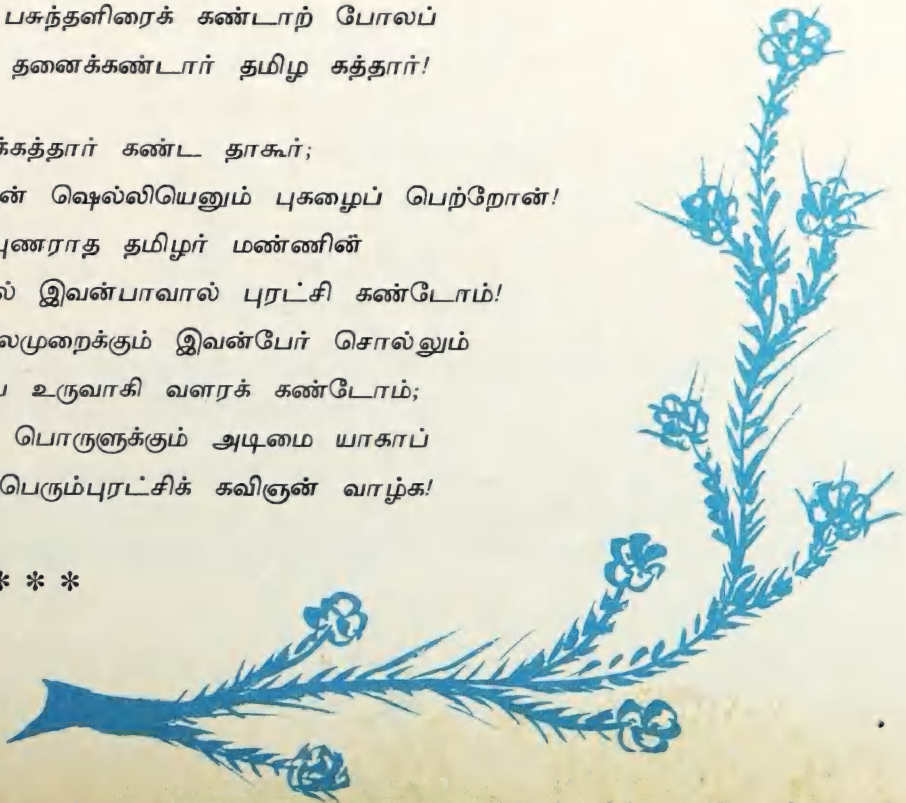 பசுந்தளிரைக் கண்டாற் போலப்
தனைக்கண்டார் தமிழ கத்தார்!
க்கத்தார் கண்ட தாகூர்;
ன் ஷெல்லியெனும் புகழைப் பெற்றோன்!
புணராத தமிழர் மண்ணின்
ல் இவன்பாவால் புரட்சி கண்டோம்!
லமுறைக்கும் இவன்பேர் சொல்லும்
உருவாகி வளரக் கண்டோம்;
பொருளுக்கும் அடிமை யாகாப்
பெரும்புரட்சிக் கவிஞன் வாழ்க!
* * *